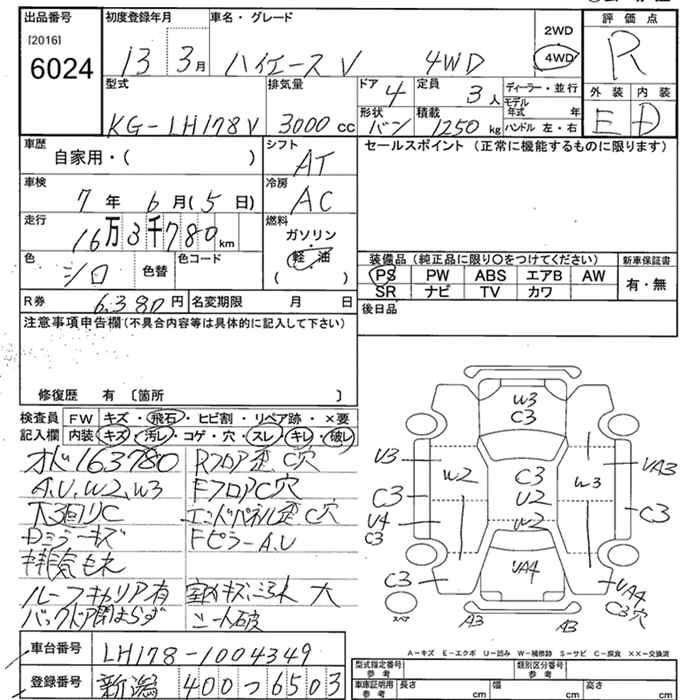 出品番号 初度登録年月 車名・グレード 評価点
[2016] 2WD
6024 13 3月 ハイエースV 4WD 4WD R
型式 排気量 ドア 4 定員 3人 ディーラー・並行 外装 内装
モデル年式 年
KG-LH178V 3000cc 形状 バン 積載 1250kg ハンドル 左・右 E D
車歴 シフト セールスポイント (正常に機能するものに限ります)
自家用・( ) AT
車検 冷房
7年 6月(5日) AC
走行 燃料
16万3千780km ガソリン
色 色替 色コード 軽油 装備品 (純正品に限り○をつけてください) 新車保証書
シロ ( ) PS PW ABS エアB AW 有・無
SR ナビ TV カワ
R券 6,380円 名変期限 月 日 後日品
注意事項申告欄(不具合内容等は具体的に記入して下さい)
修復歴 有 〔箇所 〕
検査員 FW キズ・飛石・ヒビ割・リペア跡・×要
記入欄 内装 キズ・汚レ・コゲ・穴・スレ・キレ・破レ
オド163780 Rフロア歪C穴
A.U.W2.W3 FフロアC穴
下3回リC エンドパネル歪C穴
Dミラーキズ FピラーA.U
排気もれ
ルーフキャリア有 大
バックドア閉まらず シート破
W3
C3
U3 W2 C3 W3 UA3
C3 U2 C3
U4 W2
C3
C3 UA4 UA4
C3穴
スペア A3 A3
A-キズ E-エクボ U-凹み W-補修跡 S-サビ C-腐食 ××-交換済
車台番号 LH178-1004349
型式指定番号 参考 類別区分番号 参考
登録番号 新潟 400 つ 6503
車庫証明用 参考 長さ cm 幅 cm 高さ cm